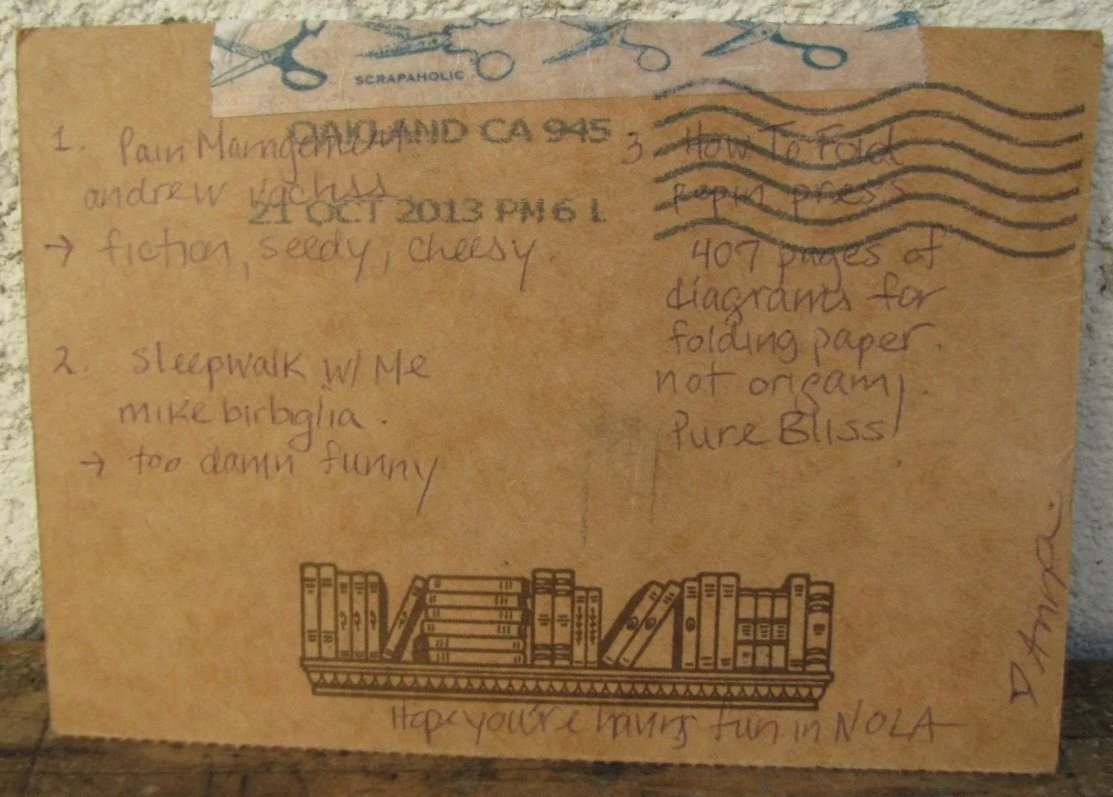 SCRAPAHOLIC
OAKLAND CA 945
21 OCT 2013 PM 6 L
1. Pain Management
andrew vachss
→ fiction, seedy, cheesy.
2. Sleepwalk w/ Me
mike birbiglia.
→ too damn funny
3. How To Fold
pepin press
407 pages of
diagrams for
folding paper.
not origami.
Pure Bliss!
Hope you're having fun in NOLA